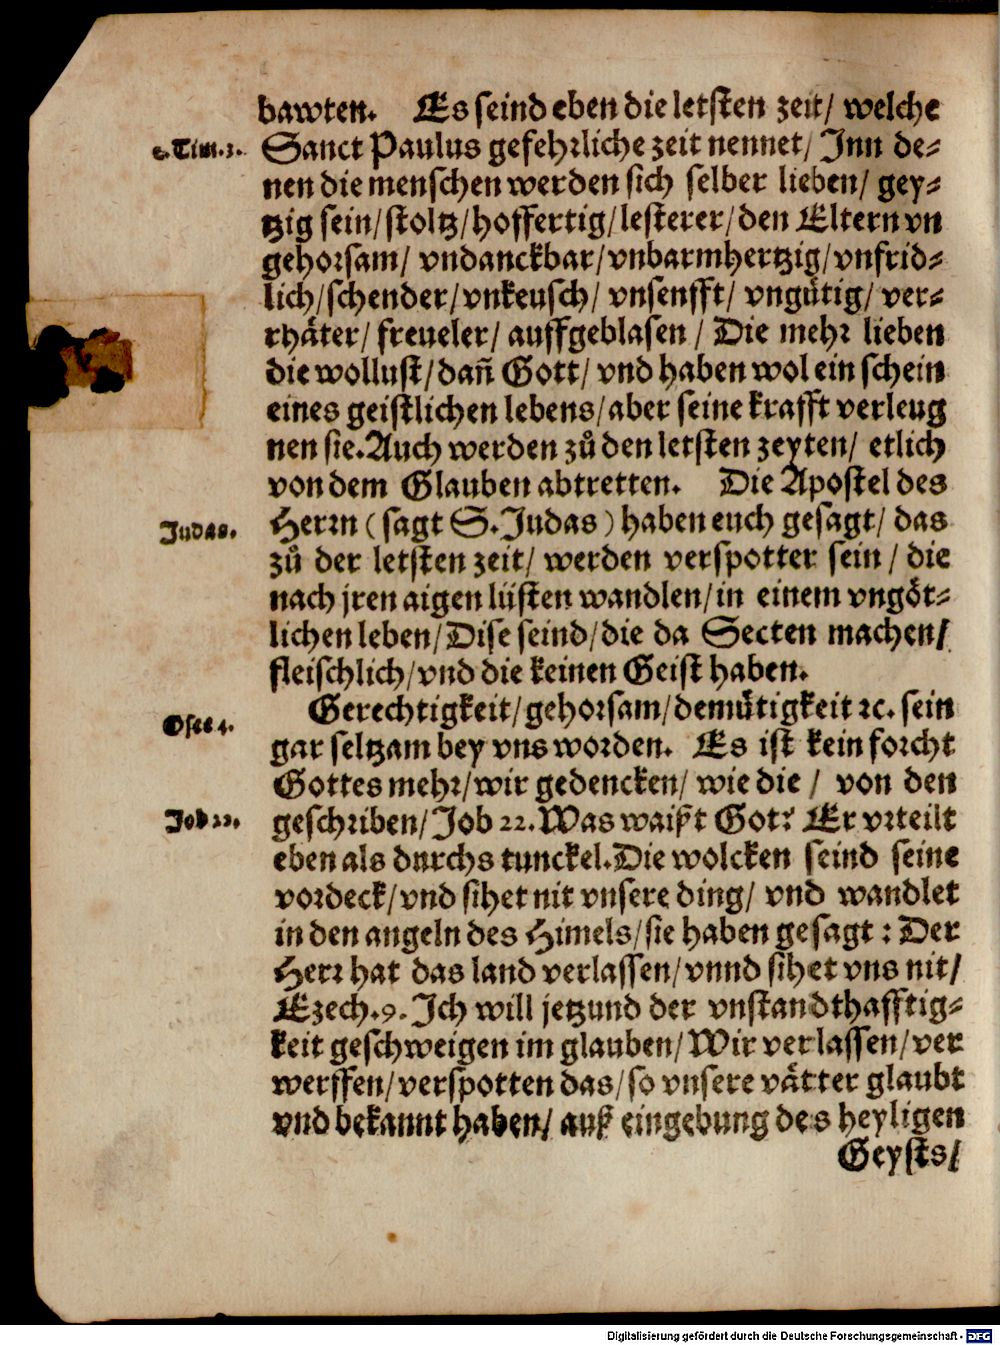 bawten. Es seind eben die letsten zeit/ welche
2. Tim. 3.
Sanct Paulus gefehrliche zeit nennet/ Inn de-
nen die menschen werden sich selber lieben/ gey-
tzig sein/ stoltz/ hoffertig/ lesterer/ den Eltern vn
gehorsam/ vndanckbar/ vnbarmhertzig/ vnfrid-
lich/ schender/ vnkeusch/ vnsenfft/ vngütig/ ver-
rhäter/ freueler/ auffgeblasen/ Die mehr lieben
die wollust/ dañ Gott/ vnd haben wol ein schein
eines geistlichen lebens/ aber seine krafft verleug
nen sie. Auch werden zů den letsten zeyten/ etlich
von dem Glauben abtretten. Die Apostel des
Judas.
Herrn (sagt S. Judas) haben euch gesagt/ das
zů der letsten zeit/ werden verspotter sein/ die
nach jren aigen lüsten wandlen/ in einem vngöt-
lichen leben/ Dise seind/ die da Secten machen/
fleischlich/ vnd die keinen Geist haben.
Osee 4.
Gerechtigkeit/ gehorsam/ demütigkeit ꝛc. sein
gar seltzam bey vns worden. Es ist kein forcht
Gottes mehr/ wir gedencken/ wie die/ von den
Job 22.
geschriben/ Job 22. Was waißt Got? Er vrteilt
eben als durchs tunckel. Die wolcken seind seine
vordeck/ vnd sihet nit vnsere ding/ vnd wandlet
in den angeln des Himels/ sie haben gesagt: Der
Herr hat das land verlassen/ vnnd sihet vns nit/
Ezech. 9. Ich will jetzund der vnstandthafftig-
keit geschweigen im glauben/ Wir verlassen/ ver
werffen/ verspotten das/ so vnsere vätter glaubt
vnd bekannt haben/ auß eingebung des heyligen
Geysts/
Digitalisierung gefördert durch die Deutsche Forschungsgemeinschaft - DFG